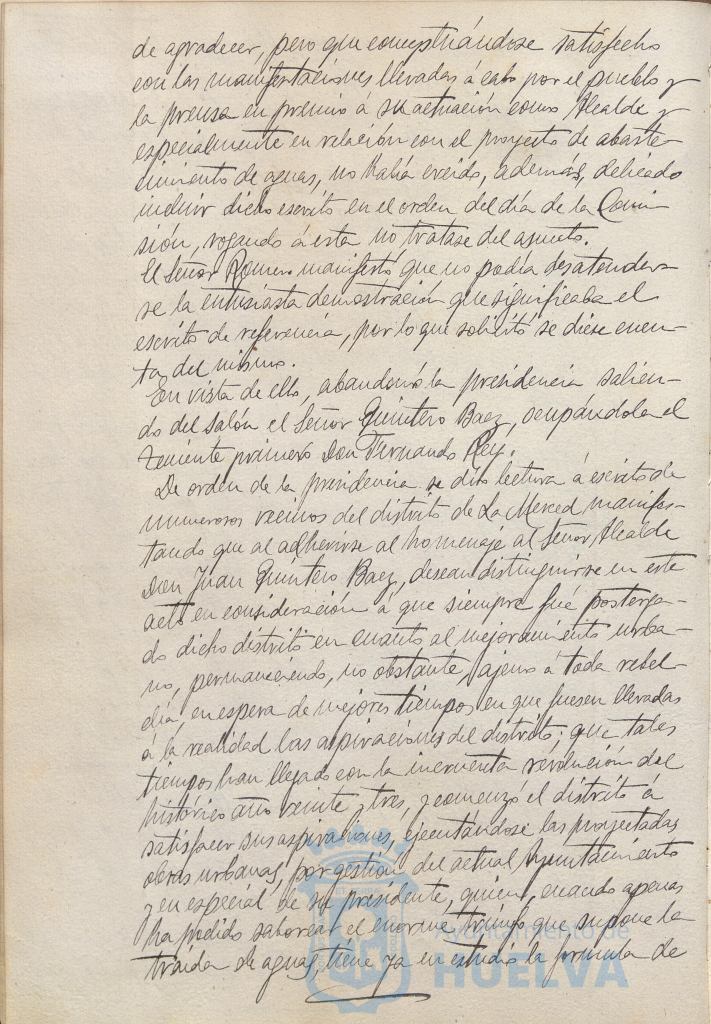 de agradecer, pero que conceptuándose satisfecho
con las manifestaciones llevadas á cabo por el pueblo y
la prensa en premio á su actuación como Alcalde y
especialmente en relación con el proyecto de abaste-
cimiento de aguas, no había creido, además, delicado
incluir dicho escrito en el orden del día de la Comi-
sión, rogando á esta no tratase del asunto.
El Señor Romero manifestó que no podía desatender-
se la entusiasta demostración que significaba el
escrito de referencia, por lo que solicitó se diese cuen-
ta del mismo.
En vista de ello, abandonó la presidencia salien-
do del salón el Señor Quintero Baez, ocupándola el
Teniente primero Don Fernando Rey.
De orden de la presidencia se dió lectura á escrito de
numerosos vecinos del distrito de La Merced manifes-
tando que al adherirse al homenaje al Señor Alcalde
Don Juan Quintero Baez, desean distinguirse en este
acto en consideración á que siempre fué posterga-
do dicho distrito en cuanto al mejoramiento urba-
no, permaneciendo, no obstante, ajeno á toda rebel-
día, en espera de mejores tiempos en que fuesen llevadas
á la realidad las aspiraciones del distrito; que tales
tiempos han llegado con la incruenta revolución del
histórico año veinte y tres, y comenzó el distrito á
satisfacer sus aspiraciones, ejecutándose las proyectadas
obras urbanas, por gestión del actual Ayuntamiento
y en especial de su presidente, quien, cuando apenas
ha podido saborear el enorme triunfo que supone la
traída de aguas, tiene ya en estudio la fórmula de
Ayuntamiento de
HUELVA